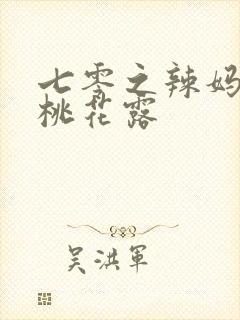 七零之辣妈
桃花露
吴洪军